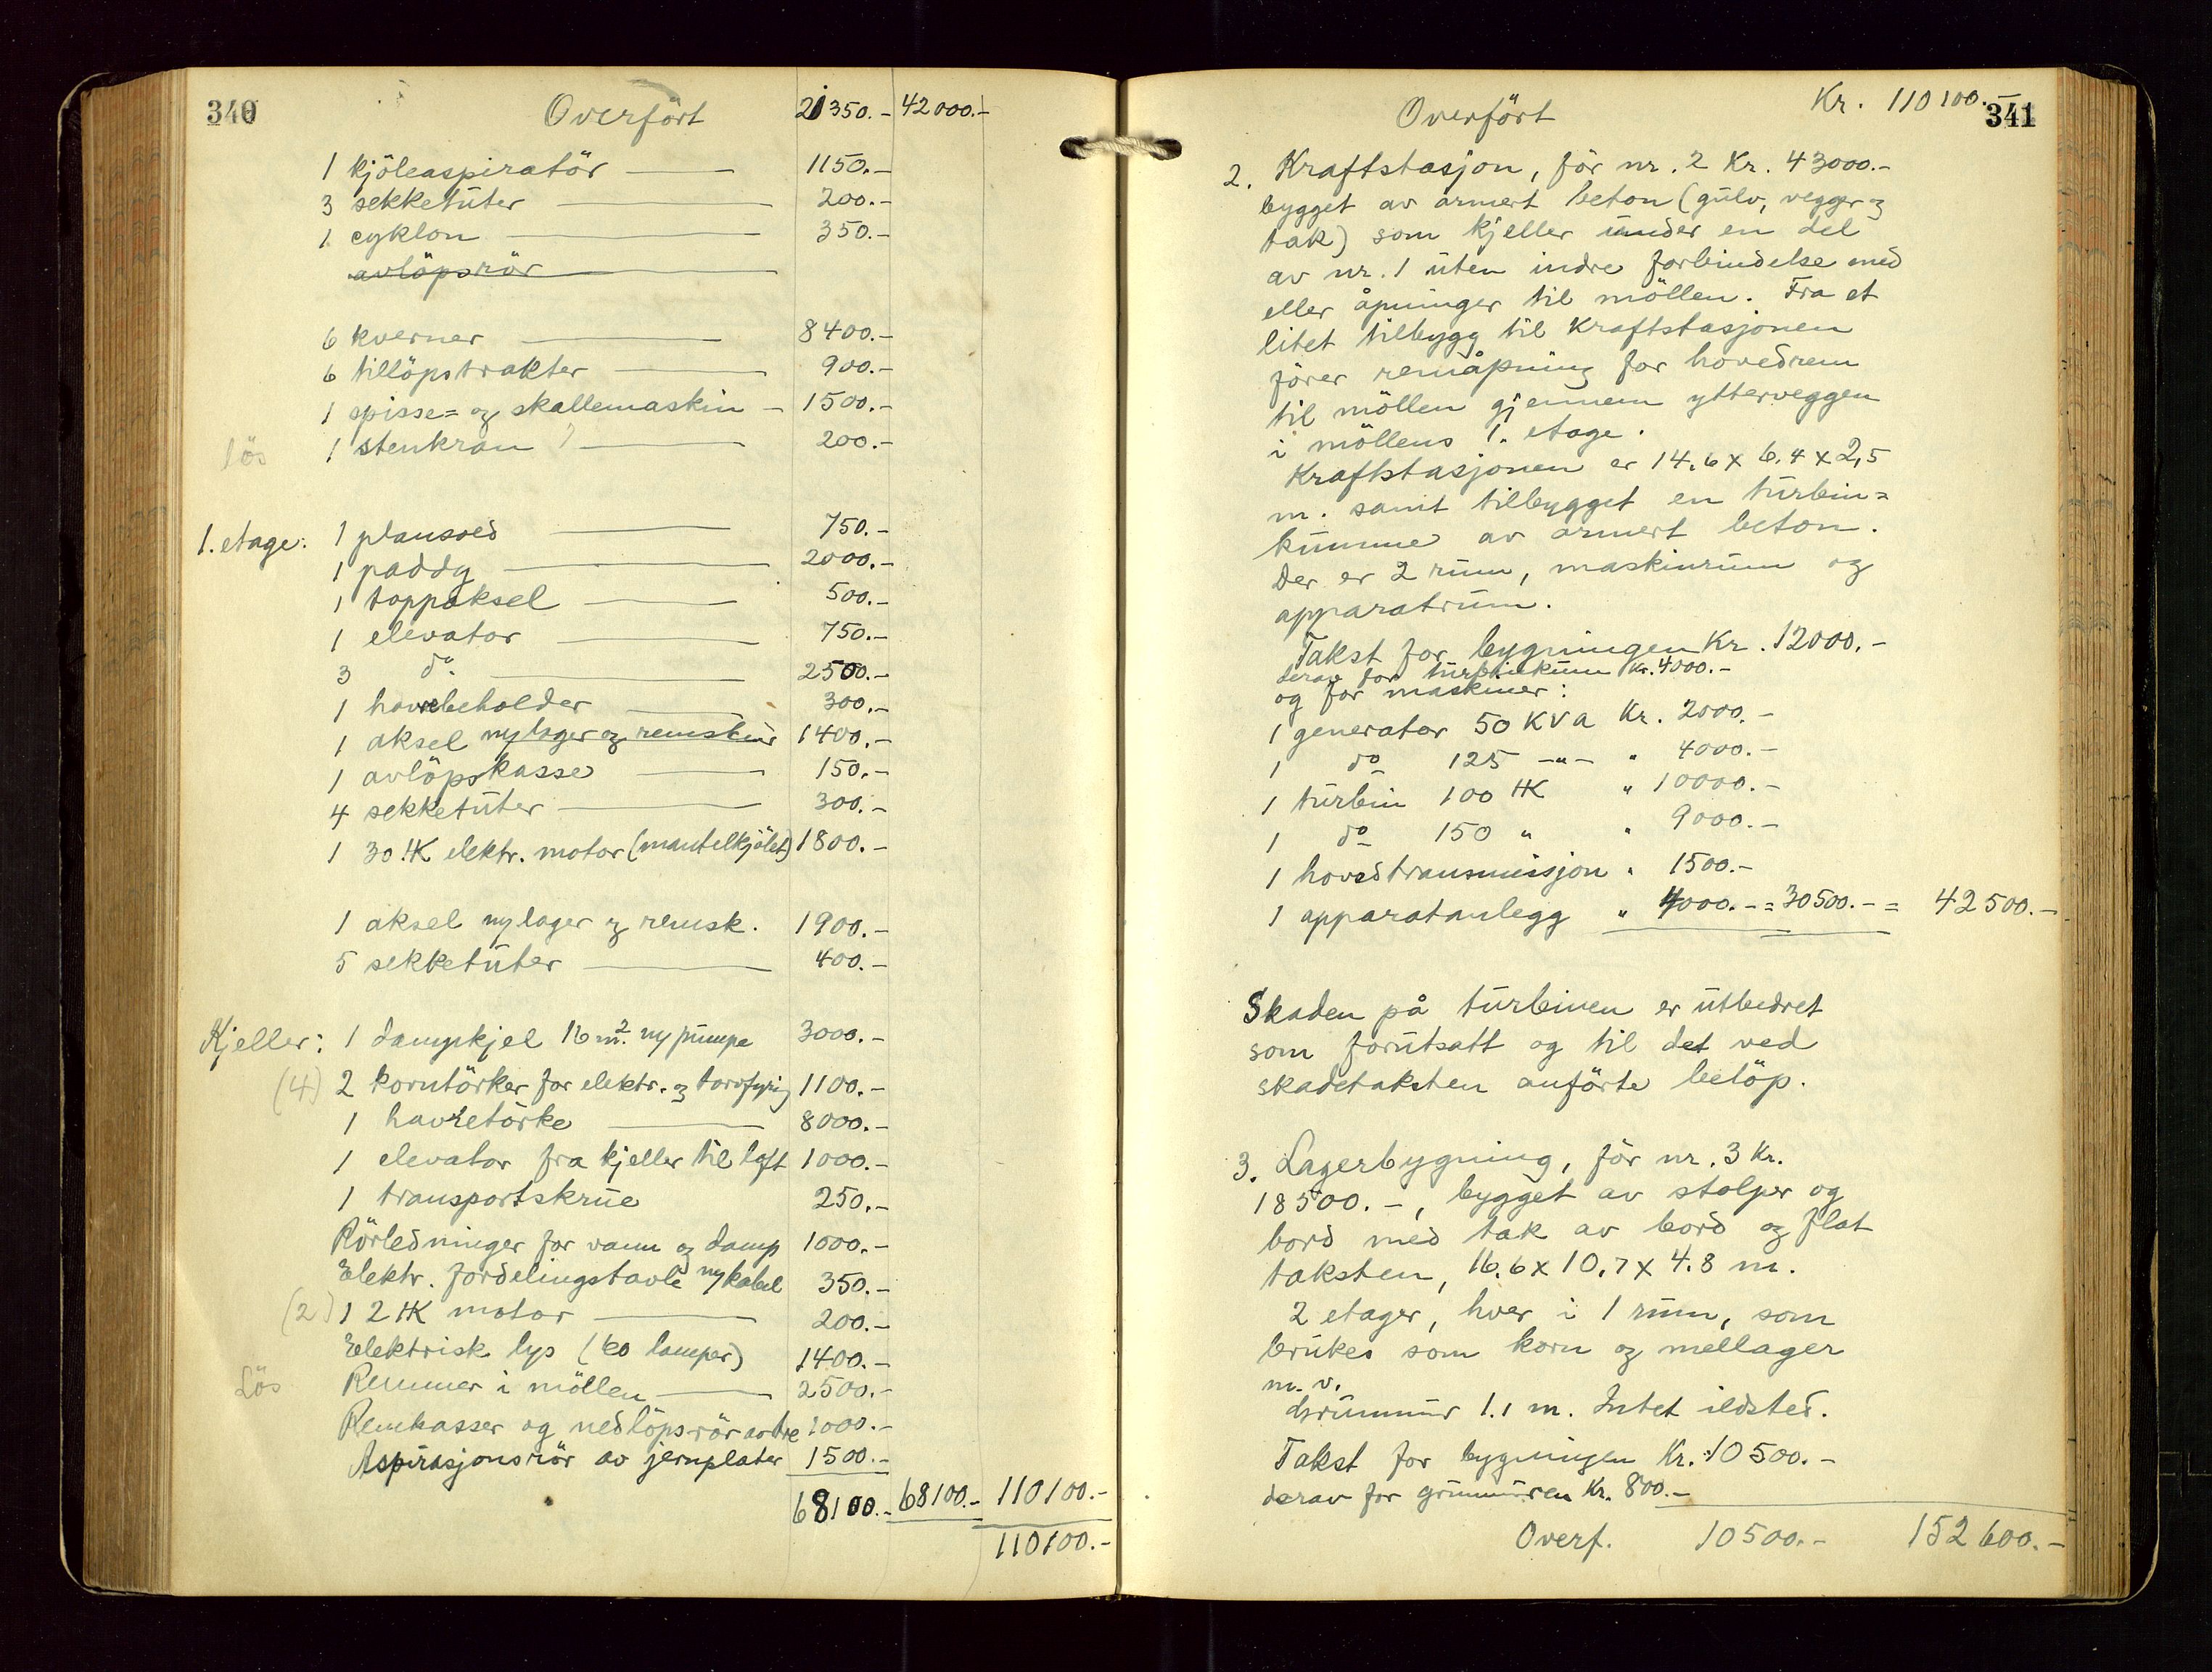 340
Overfört 21350.- 42000.-
1 kjöleaspiratör 1150.-
3 sekketuter 200.-
1 cyklon 350.-
avlöpsrör
6 kverner 8400.-
6 tillöpstrakter 900.-
1 spisse= og skallemaskin - 1500.-
lös 1 stenkran 200.-
1. etage: 1 plansold 750.-
1 paddy 2000.-
1 toppaksel 500.-
1 elevator 750.-
3 do. 2500.-
1 havrebeholder 300.-
1 aksel ny lager og remskiver 1400.-
1 avlöpskasse 150.-
4 sekketuter 300.-
1 30 HK elektr. motor (mantelkjölet) 1800.-
1 aksel ny lager og remsk. 1900.-
5 sekketuter 400.-
Kjeller: 1 dampkjel 16 m². ny pumpe 3000.-
(4) 2 korntörker for elektr. og torvfyring 1100.-
1 havretörke 8000.-
1 elevator fra kjeller til loft 1000.-
1 transportskrue 250.-
Rörledninger for vann og damp 1000.-
Elektr. fordelingstavle ny kabel 350.-
(2) 1 2 HK motor 200.-
Elektrisk lys (60 lamper) 1400.-
Lös Remmer i möllen 2500.-
Remkasser og nedlöpsrör av tre 1000.-
Aspirasjonsrör av jernplater 1500.-
68100.- 68100.- 110100.-
110100.-
341
Overfört Kr. 110100.-
2. Kraftstasjon, för nr. 2 Kr. 43000.-
bygget av armert beton (gulv, vegger og
tak) som kjeller under en del
av nr. 1 uten indre forbindelse med
eller åpninger til möllen. Fra et
litet tilbygg til kraftstasjonen
förer remåpning for hovedrem
til möllen gjennem ytterveggen
i möllens 1. etage.
Kraftstasjonen er 14.6 x 6.4 x 2,5
m. samt tilbygget en turbin=
kumme av armert beton.
Der er 2 rum, maskinrum og
apparatrum.
Takst for bygningen Kr. 12000.-
derav for turbinkum Kr. 4000.-
og for maskiner:
1 generator 50 KVA Kr. 2000.-
1 do 125 -"- " 4000.-
1 turbin 100 HK " 10000.-
1 do 150 " " 9000.-
1 hovedtransmisjon " 1500.-
1 apparatanlegg " 4000.- = 30500.- = 42500.-
Skaden på turbinen er utbedret
som forutsatt og til det ved
skadetaksten anförte belöp.
3. Lagerbygning, för nr. 3 Kr.
18500.-, bygget av stolper og
bord med tak av bord og flat
taksten, 16.6 x 10.7 x 4.8 m.
2 etager, hver i 1 rum, som
brukes som korn og mellager
m.v.
Grunnmur 1.1 m. Intet ildsted.
Takst for bygningen Kr. 10500.-
derav for grunnmuren Kr. 800.-
Overf. 10500.- 152600.-